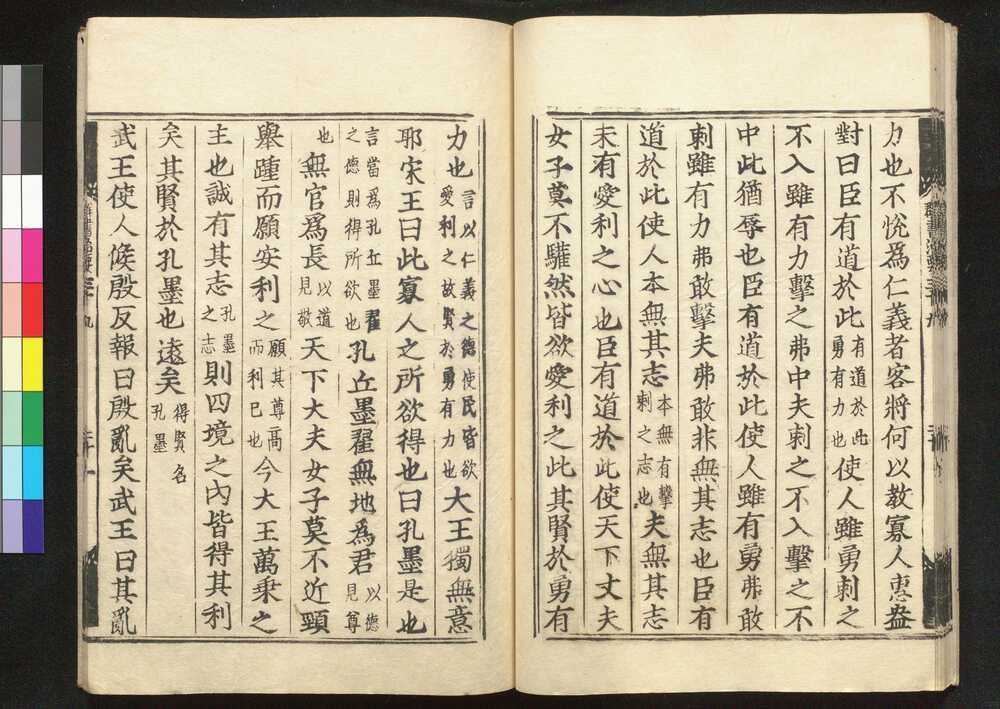 力也不悅爲仁義者客將何以敎寡人惠盎
對曰臣有道於此有道於此勇有力也使人雖勇刺之
不入雖有力擊之弗中夫刺之不入擊之不
中此猶辱也臣有道於此使人雖有勇弗敢
刺雖有力弗敢擊夫弗敢非無其志也臣有
道於此使人本無其志本無有擊刺之志也夫無其志
未有愛利之心也臣有道於此使天下丈夫
女子莫不驩然皆欲愛利之此其賢於勇有
力也言以仁義之德使民皆欲愛利之故賢於勇有力也大王獨無意
耶宋王曰此寡人之所欲得也曰孔墨是也
言當爲孔丘墨翟之德則得所欲也孔丘墨翟無地爲君以德見尊
也無官爲長以道見敬天下大夫女子莫不近頸
擧踵而願安利之願其尊高而利巳也今大王萬乘之
主也誠有其志孔墨之志則四境之內皆得其利
矣其賢於孔墨也遠矣得賢名孔墨
武王使人候殷反報曰殷亂矣武王曰其亂
群書治要三十九